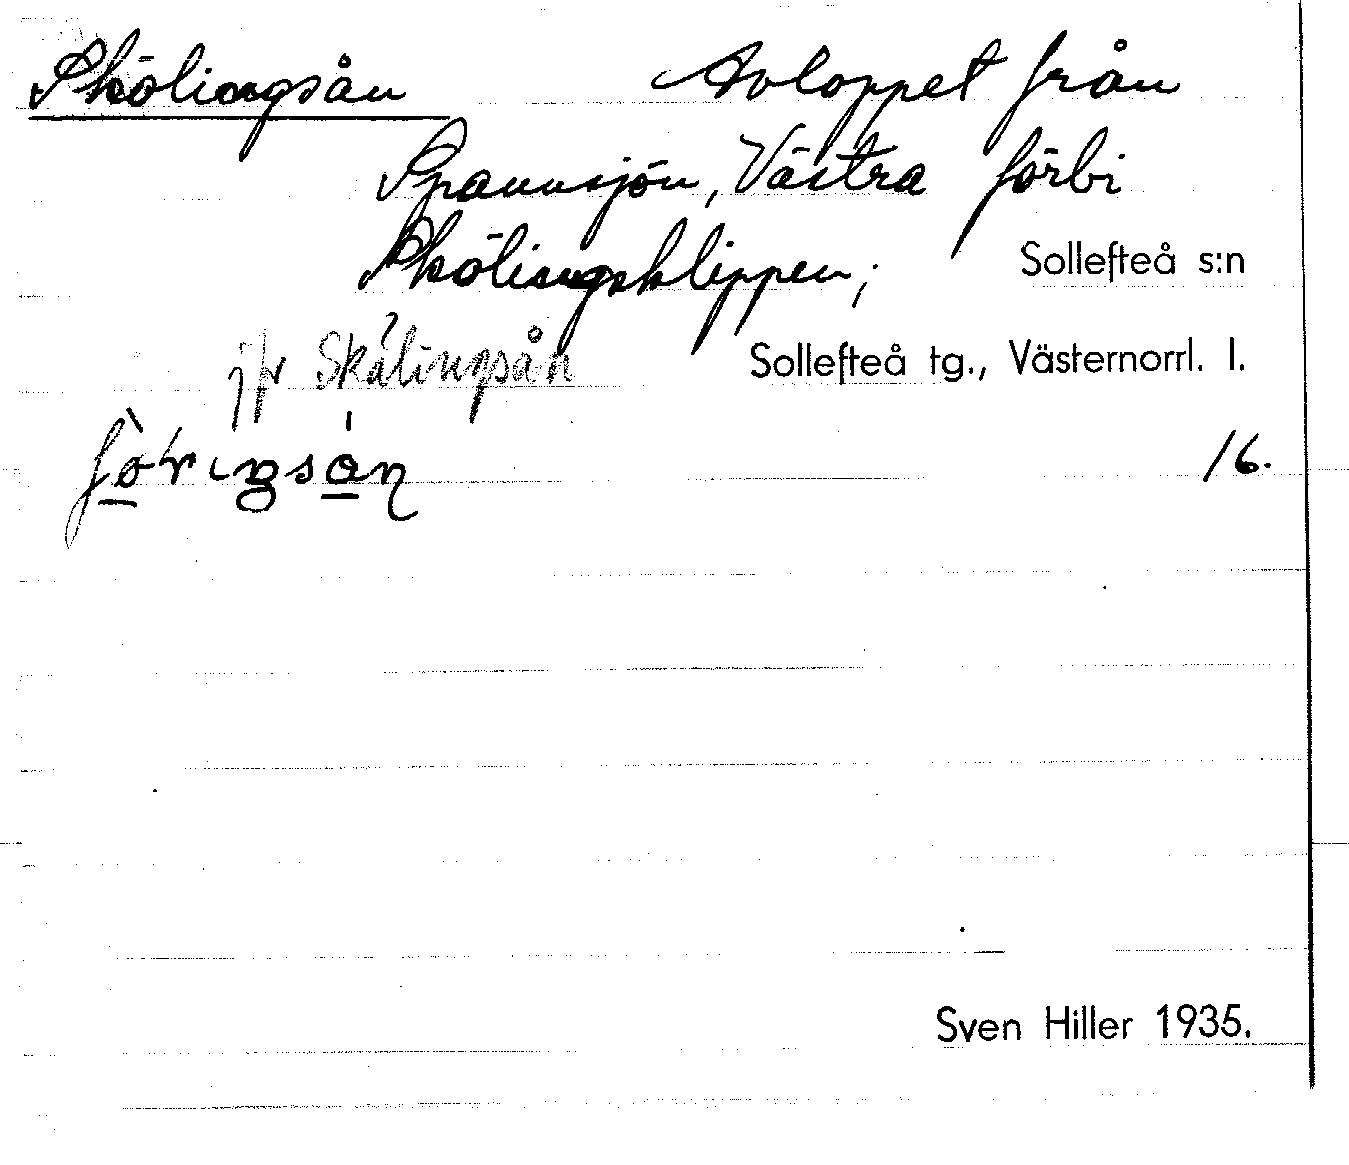 Skölingsån Avloppet från
Spannsjön, Västra förbi
Skölingsklippen; Sollefteå s:n
jfr Skålingsån Sollefteå tg., Västernorrl. l.
16.
Sven Hiller 1935.